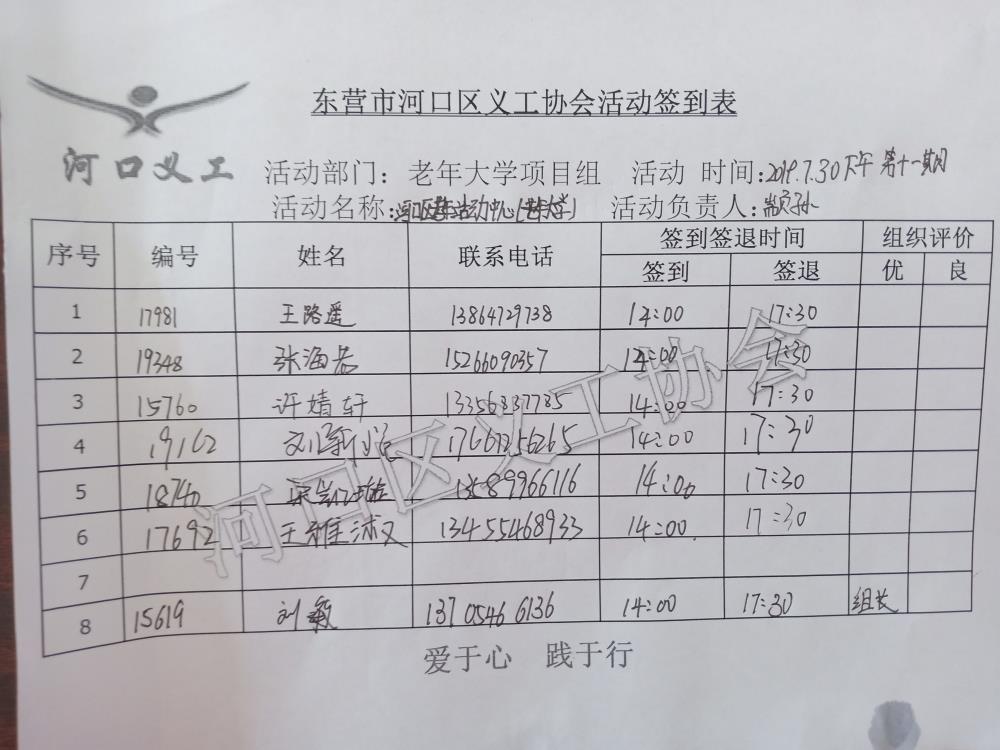 东营市河口区义工协会活动签到表
河口义工
活动部门：老年大学项目组 活动 时间:2019.7.30下午 第十一期
活动名称: 活动中心 活动负责人:
序号 编号 姓名 联系电话 签到签退时间 组织评价
签到 签退 优 良
1 17981 王路遥 13864729738 14:00 17:30
2 19348 张海 15266090357 14:00 17:30
3 15760 许婧轩 13356837785 14:00 17:30
4 19162 17667256265 14:00 17:30
5 18740 13589966116 14:00 17:30
6 17692 王雅淑 13455468933 14:00 17:30
7
8 15619 刘敏 13705466136 14:00 17:30 组长
爱于心 践于行
河口区义工协会